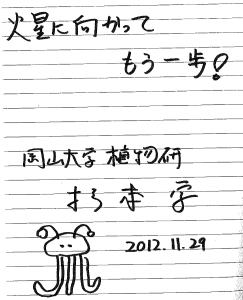 火星に向かって
もう一歩!
岡山大学 植物研
杉本 学
2012.11.29